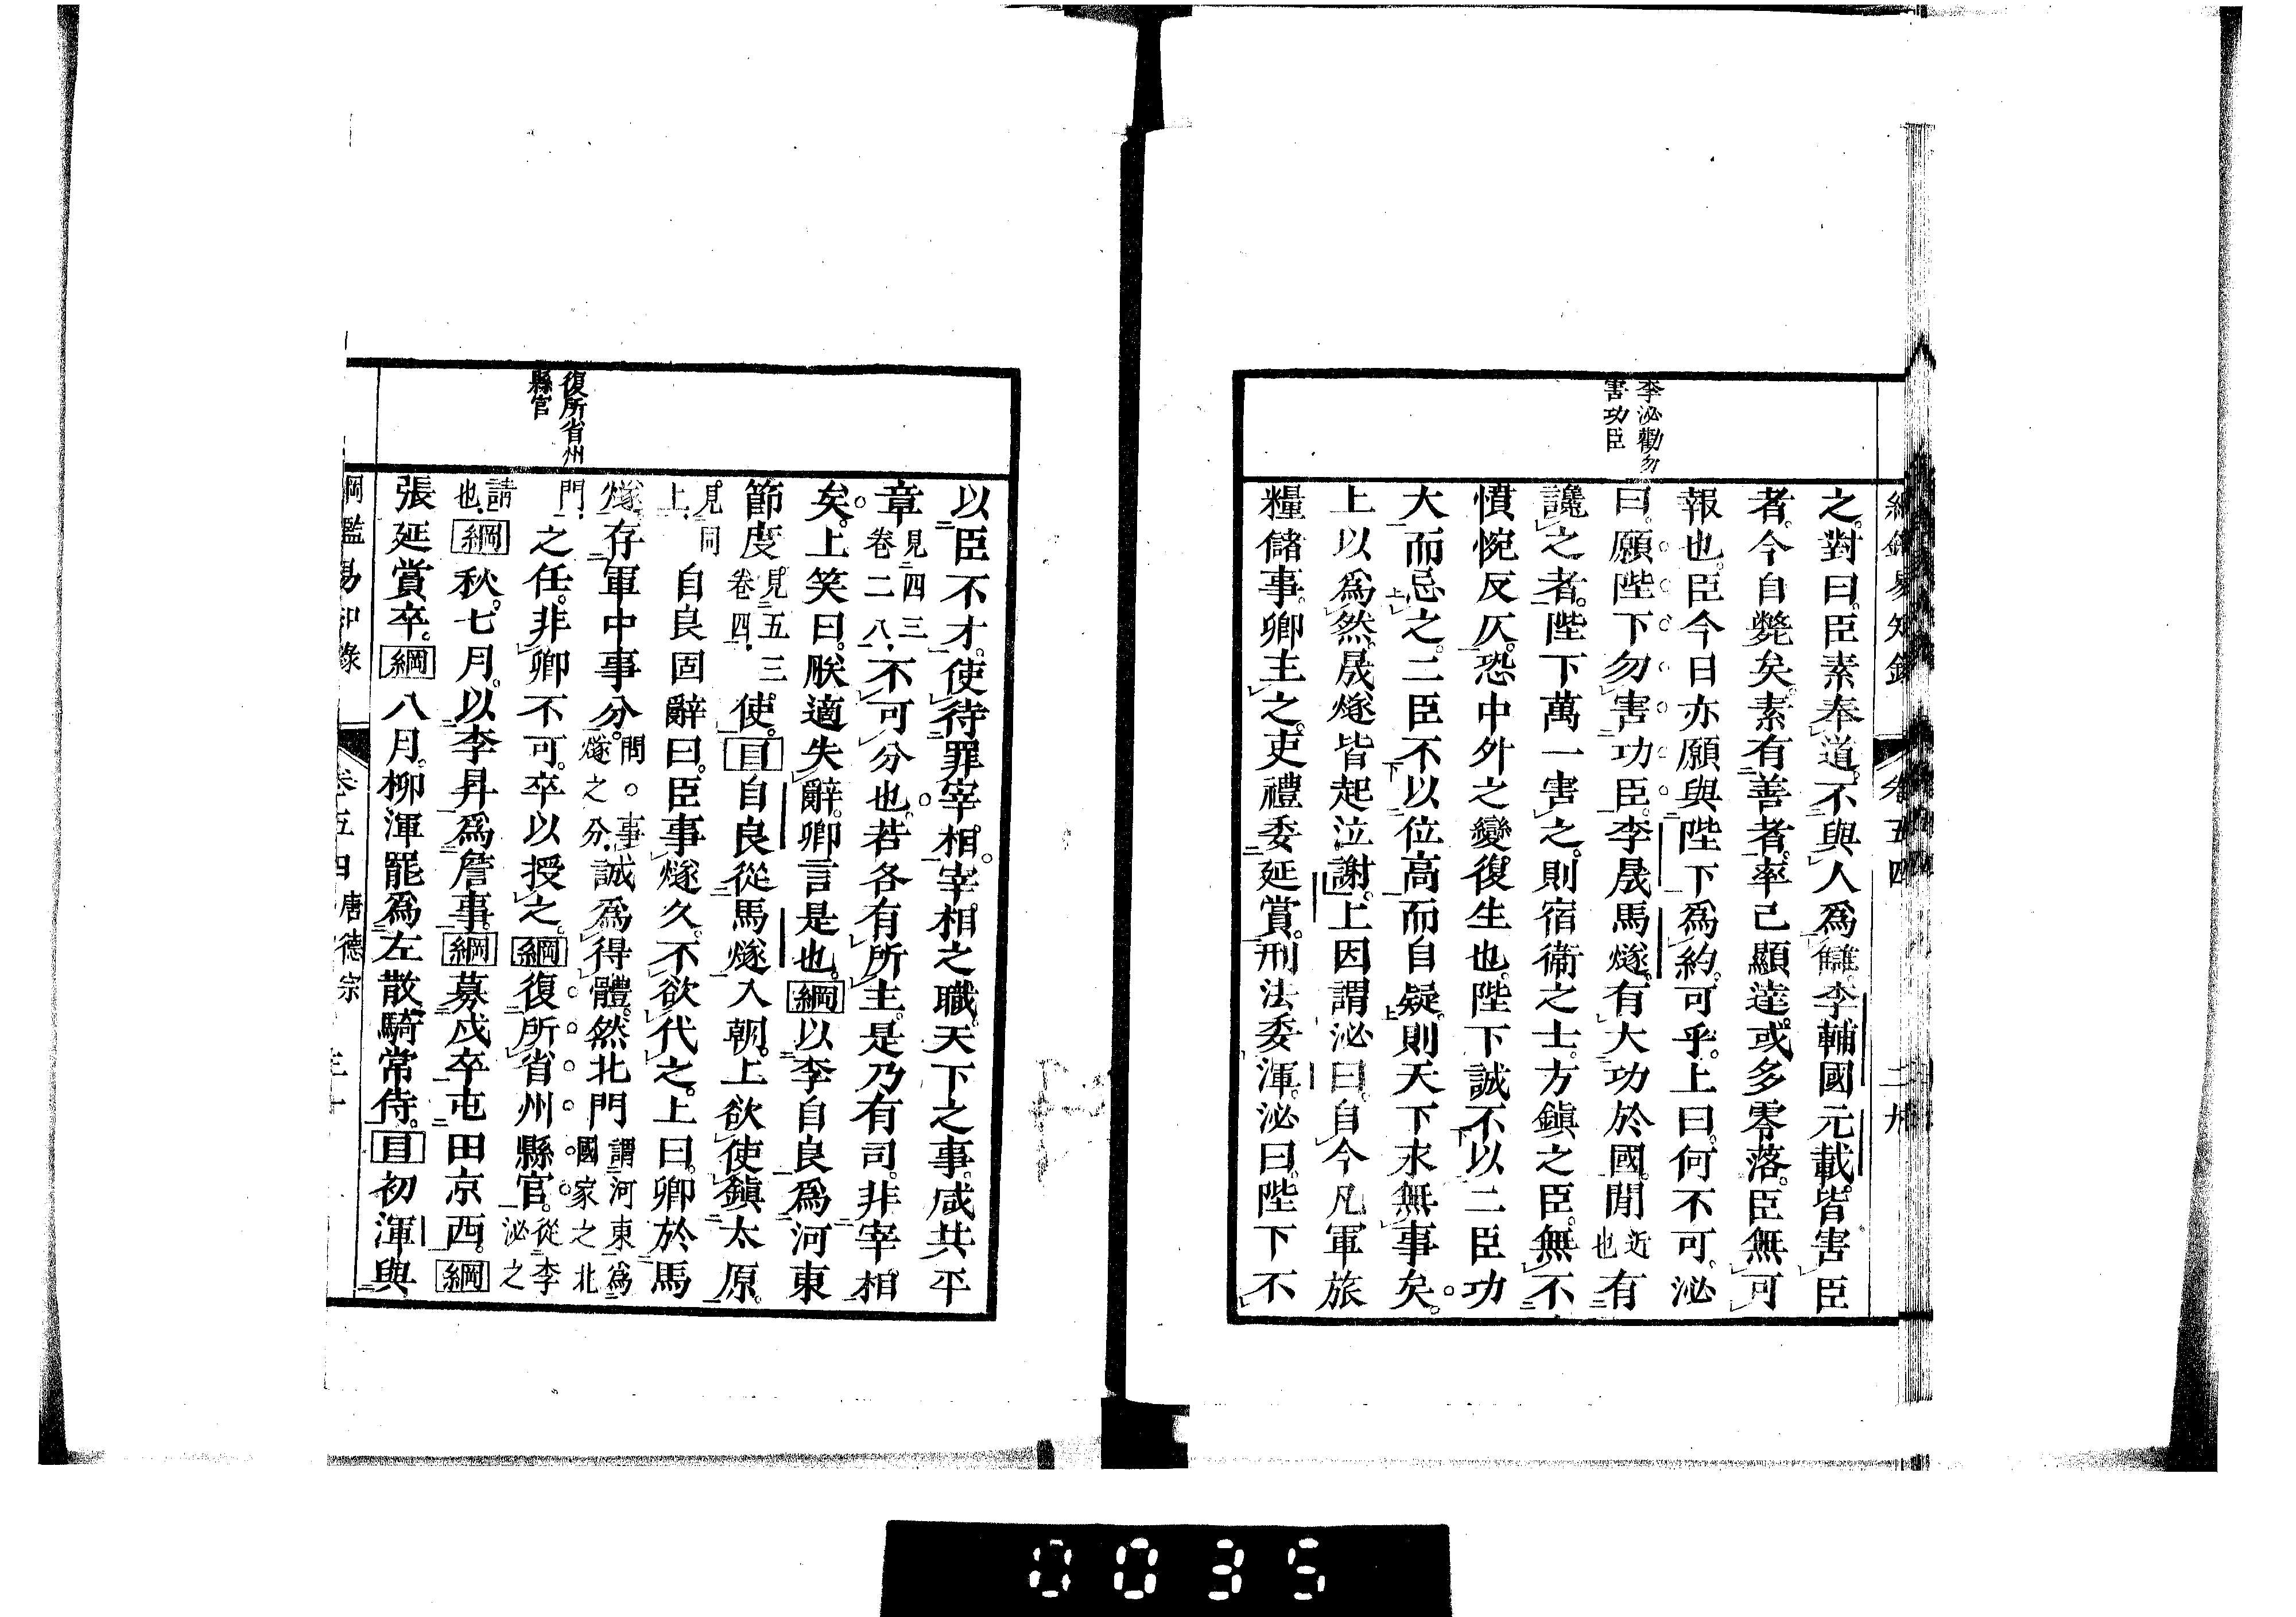 李泌勸勿
害功臣
之。對曰。臣素奉道。不與人爲讎。李輔國元載。皆害臣
者。今自斃矣。素有善者。率已顯達。或多零落。臣無可
報也。臣今日亦願與陛下爲約。可乎。上曰。何不可。泌
曰。願陛下勿害功臣。李晟馬燧。有大功於國。聞近也有
讒之者。陛下萬一害之。則宿衞之士。方鎭之臣。無不
憤惋反仄。恐中外之變復生也。陛下誠不以二臣功
大而忌之。二臣不以位高而自疑。則天下永無事矣。
上以爲然。晟燧皆起泣謝。上因謂泌曰。自今凡軍旅
糧儲事。卿主之。吏禮委延賞。刑法委渾。泌曰。陛下不
復所省州
縣官
以臣不才。使待罪宰相。宰相之職。天下之事。咸共平
章見四三卷二八。不可分也。若各有所主。是乃有司。非宰相
矣。上笑曰。朕適失辭。卿言是也。綱以李自良爲河東
節度見五三卷四。使。目自良從馬燧入朝。上欲使鎭太原。
見同上。自良固辭曰。臣事燧久。不欲代之。上曰。卿於馬
燧。存軍中事分。間。事燧之分。誠爲得體。然北門謂河東爲國家之北
門。之任。非卿不可。卒以授之。綱復所省州縣官。從李泌之
請也。綱秋。七月。以李昇爲詹事。綱募戍卒屯田京西。綱
張延賞卒。綱八月。柳渾罷爲左散騎常侍。目初渾與
綱鑑易知錄 卷五四 唐德宗 三十
0035